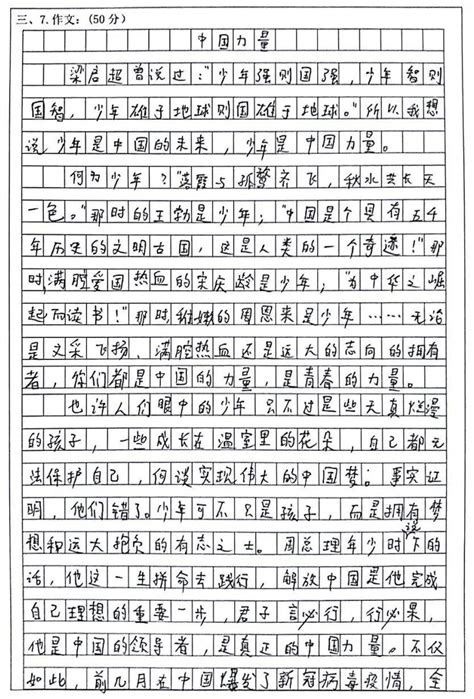 三、7.作文：(50分)
中国力量
梁启超曾说过："少年强则国强，少年智则
国智，少年雄于地球则国雄于地球。"所以，我想
说，少年是中国的未来，少年是中国力量。
何为少年？"落霞与孤鹜齐飞，秋水共长天
一色。"那时的王勃是少年；"中国是个具有五千
年历史的文明古国，这是人类的一个奇迹！"那
时，满腔爱国热血的宋庆龄是少年；"为中华之崛
起而读书！"那时稚嫩的周恩来是少年……无论
是文采飞扬、满腔热血还是远大的志向的拥有
者，你们都是中国的力量，是青春的力量。
也许人们眼中的少年只不过是些天真烂漫
的孩子，一些成长在温室里的花朵，自己都无
法保护自己，何谈实现伟大的中国梦。事实证
明，他们错了。少年可不只是孩子，而是拥有梦
想和远大抱负的有志之士。周总理年少时说下的
话，他这一生拼命去践行，解放中国是他完成
自己理想的重要一步，君子言必行，行必果，
他是中国的领导者，是真正的中国力量。不仅
如此，前几月在中国爆发了新冠病毒疫情，全